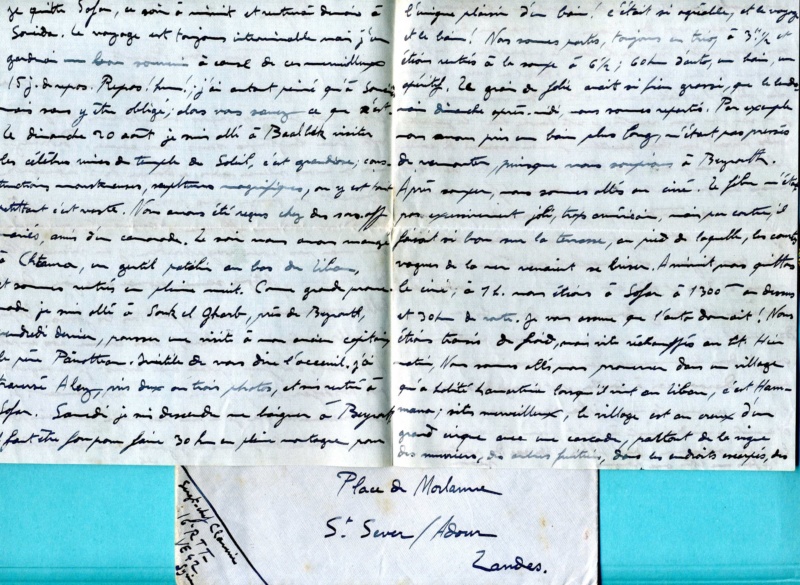 je quitte Sofar, ce soir à minuit et rentrerai demain à
Soueida. Le voyage est toujours interminable mais j'en
garderai un bon souvenir à cause de ces merveilleux
15 j. de repos. Repos! hum!; j'ai autant peiné qu'à Soueida
mais sans y être obligé; alors vous savez ce que c'est.
Le dimanche 20 août je suis allé à Baalbek visiter
les célèbres ruines du temple du Soleil, c'est grandiose; cons-
tructions monstrueuses, sculptures magnifiques, on y est tout
petit tant c'est vaste. Nous avons été reçus chez des sous-off
mariés, amis d'un camarade. Le soir nous avons mangé
à Chtaura, un gentil patelin au bas du Liban,
et sommes rentrés en pleine nuit. Comme grande prome-
nade je suis allé à Souk el Gharb, près de Beyrouth,
vendredi dernier, pousser une visite à mon ancien capitaine
le père Inutile de vous dire l'acceuil. j'ai
traversé Aley, pris deux ou trois photos, et suis rentré à
Sofar. Samedi je suis descendu me baigner à Beyrouth
il faut être fou pour faire 30 km en pleine montagne, pour
l'unique plaisir d'un bain! c'était si agréable, et le voyage
et le bain! Nous sommes partis, toujours en trio, à 3h ½ et
étions rentrés à la soupe à 6 ½; 60 km d'auto, un bain, un
apéritif. Le grain de folie avait si bien grossi, que le lende-
main dimanche après-midi, nous sommes repartis. Par exemple
nous avons pris un bain plus long, n'étant pas pressés
de remonter, puisque nous soupions à Beyrouth.
Après souper, nous sommes allés au ciné. Le film n'était
pas excessivement joli, trop américain, mais par contre, il
faisait si bon sur la terrasse, au pied de laquelle, les courtes
vagues de la mer venaient se briser. A minuit nous quittons
le ciné; à 1h. nous étions à Sofar à 1300 m au dessus
et 30 km de route. Je vous assure que l'auto donnait! Nous
étions transis de froid, mais vite réchauffés au lit. Hier
matin, Nous sommes allés nous promener dans un village
qu'a habité Lamartine lorsqu'il vint au Liban, c'est Ham-
mana; site merveilleux, le village est au creux d'un
grand cirque avec une cascade, partout de la vigne
des muriers, des arbres fruitiers, dans les endroits escarpés, des
Serg. chef
16e R.T.T.
Place de Morlanne
St Sever / Adour
Landes.